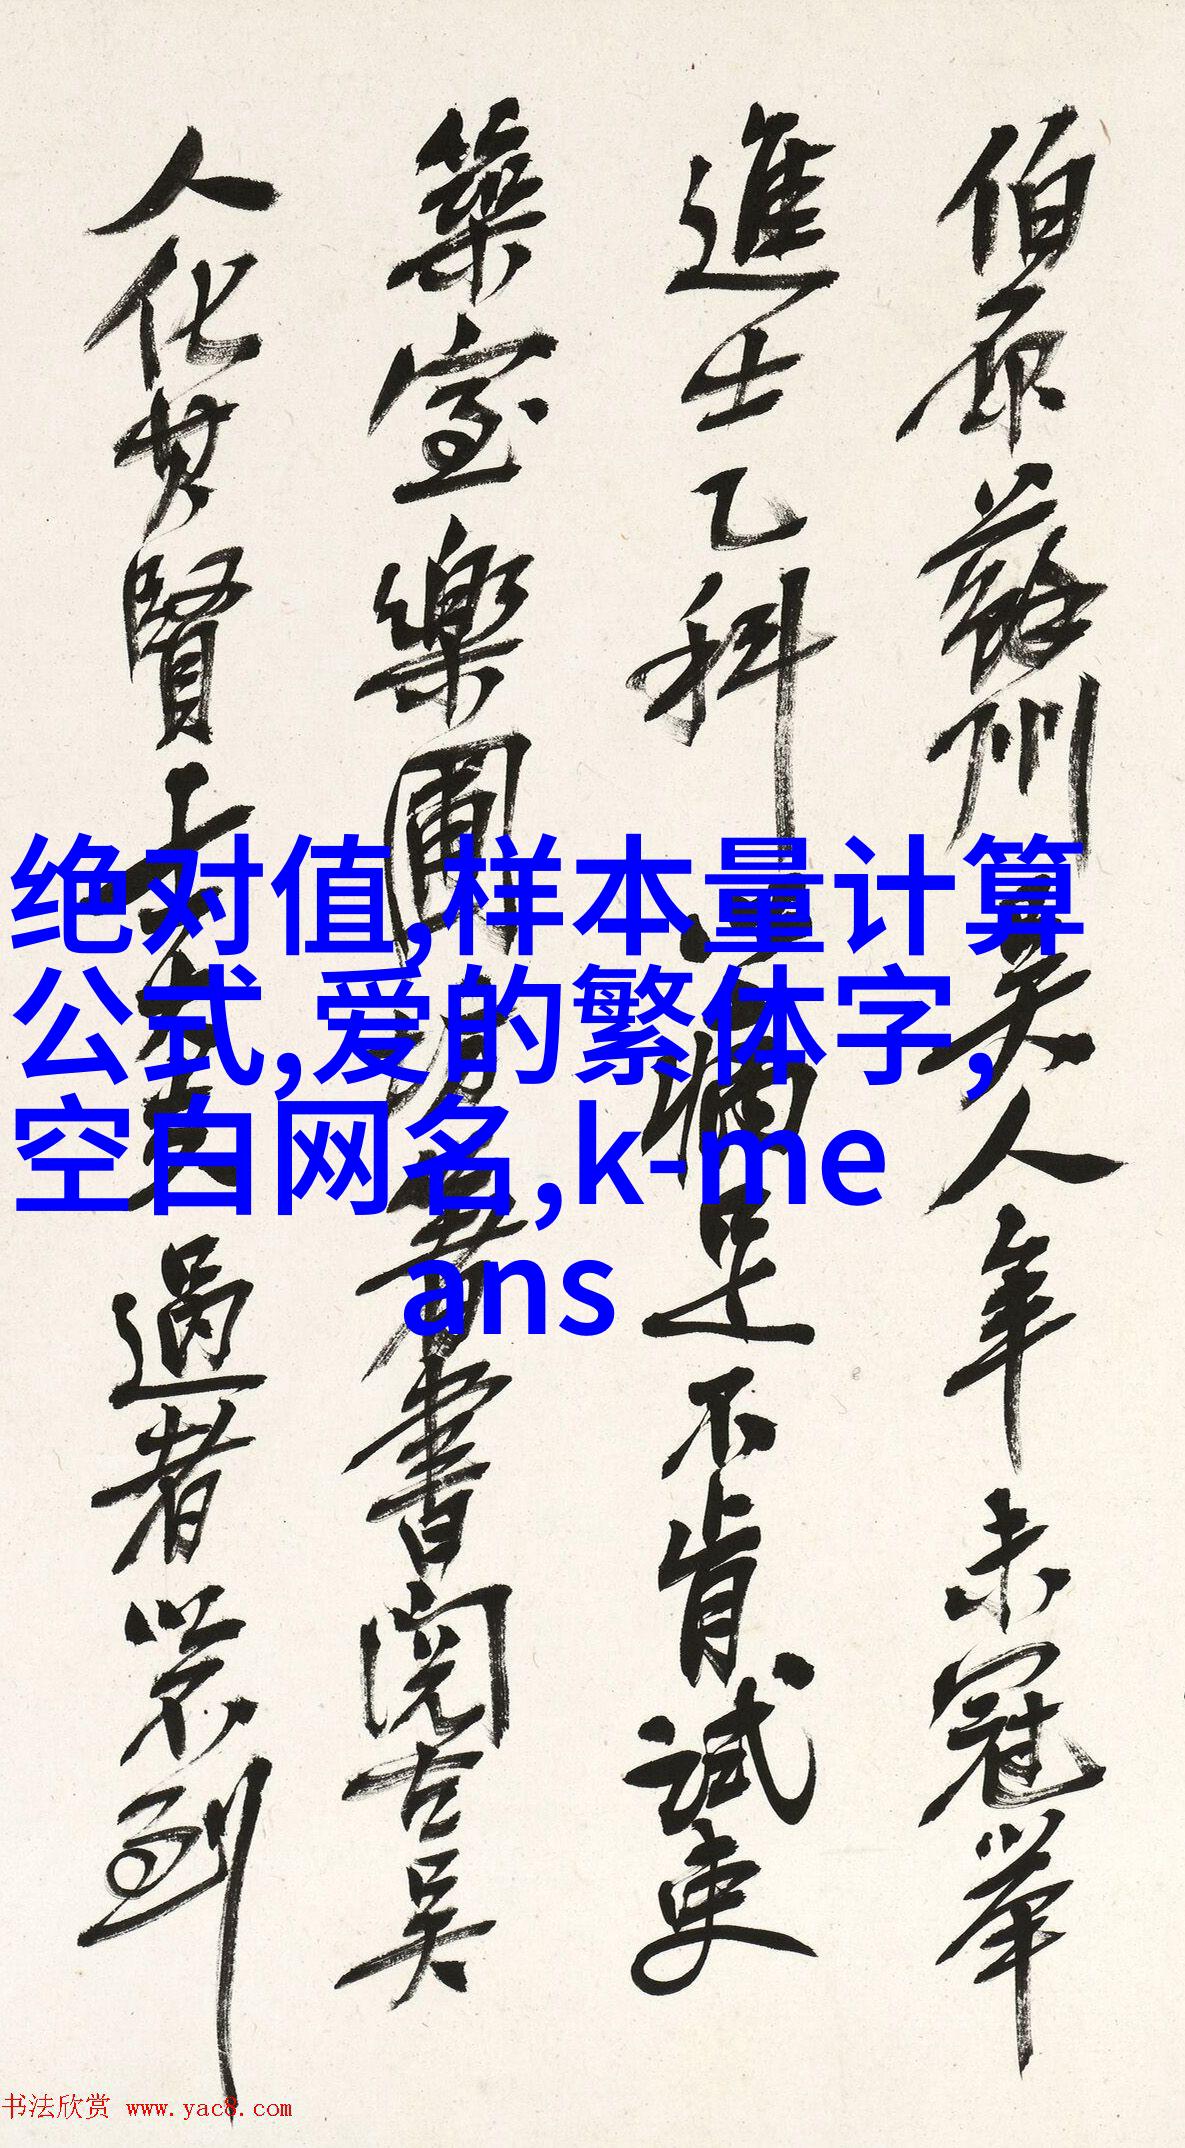 伯原蘇州吳人年未冠舉
進士乙科以病足不肯試吏
築室樂圃坊著書閱古吳
人化其賢士大夫過者以不到
绝对值,样本量计算
公式,爱的繁体字,
空白网名,k-me
ans
书法欣赏 www.yac8.com